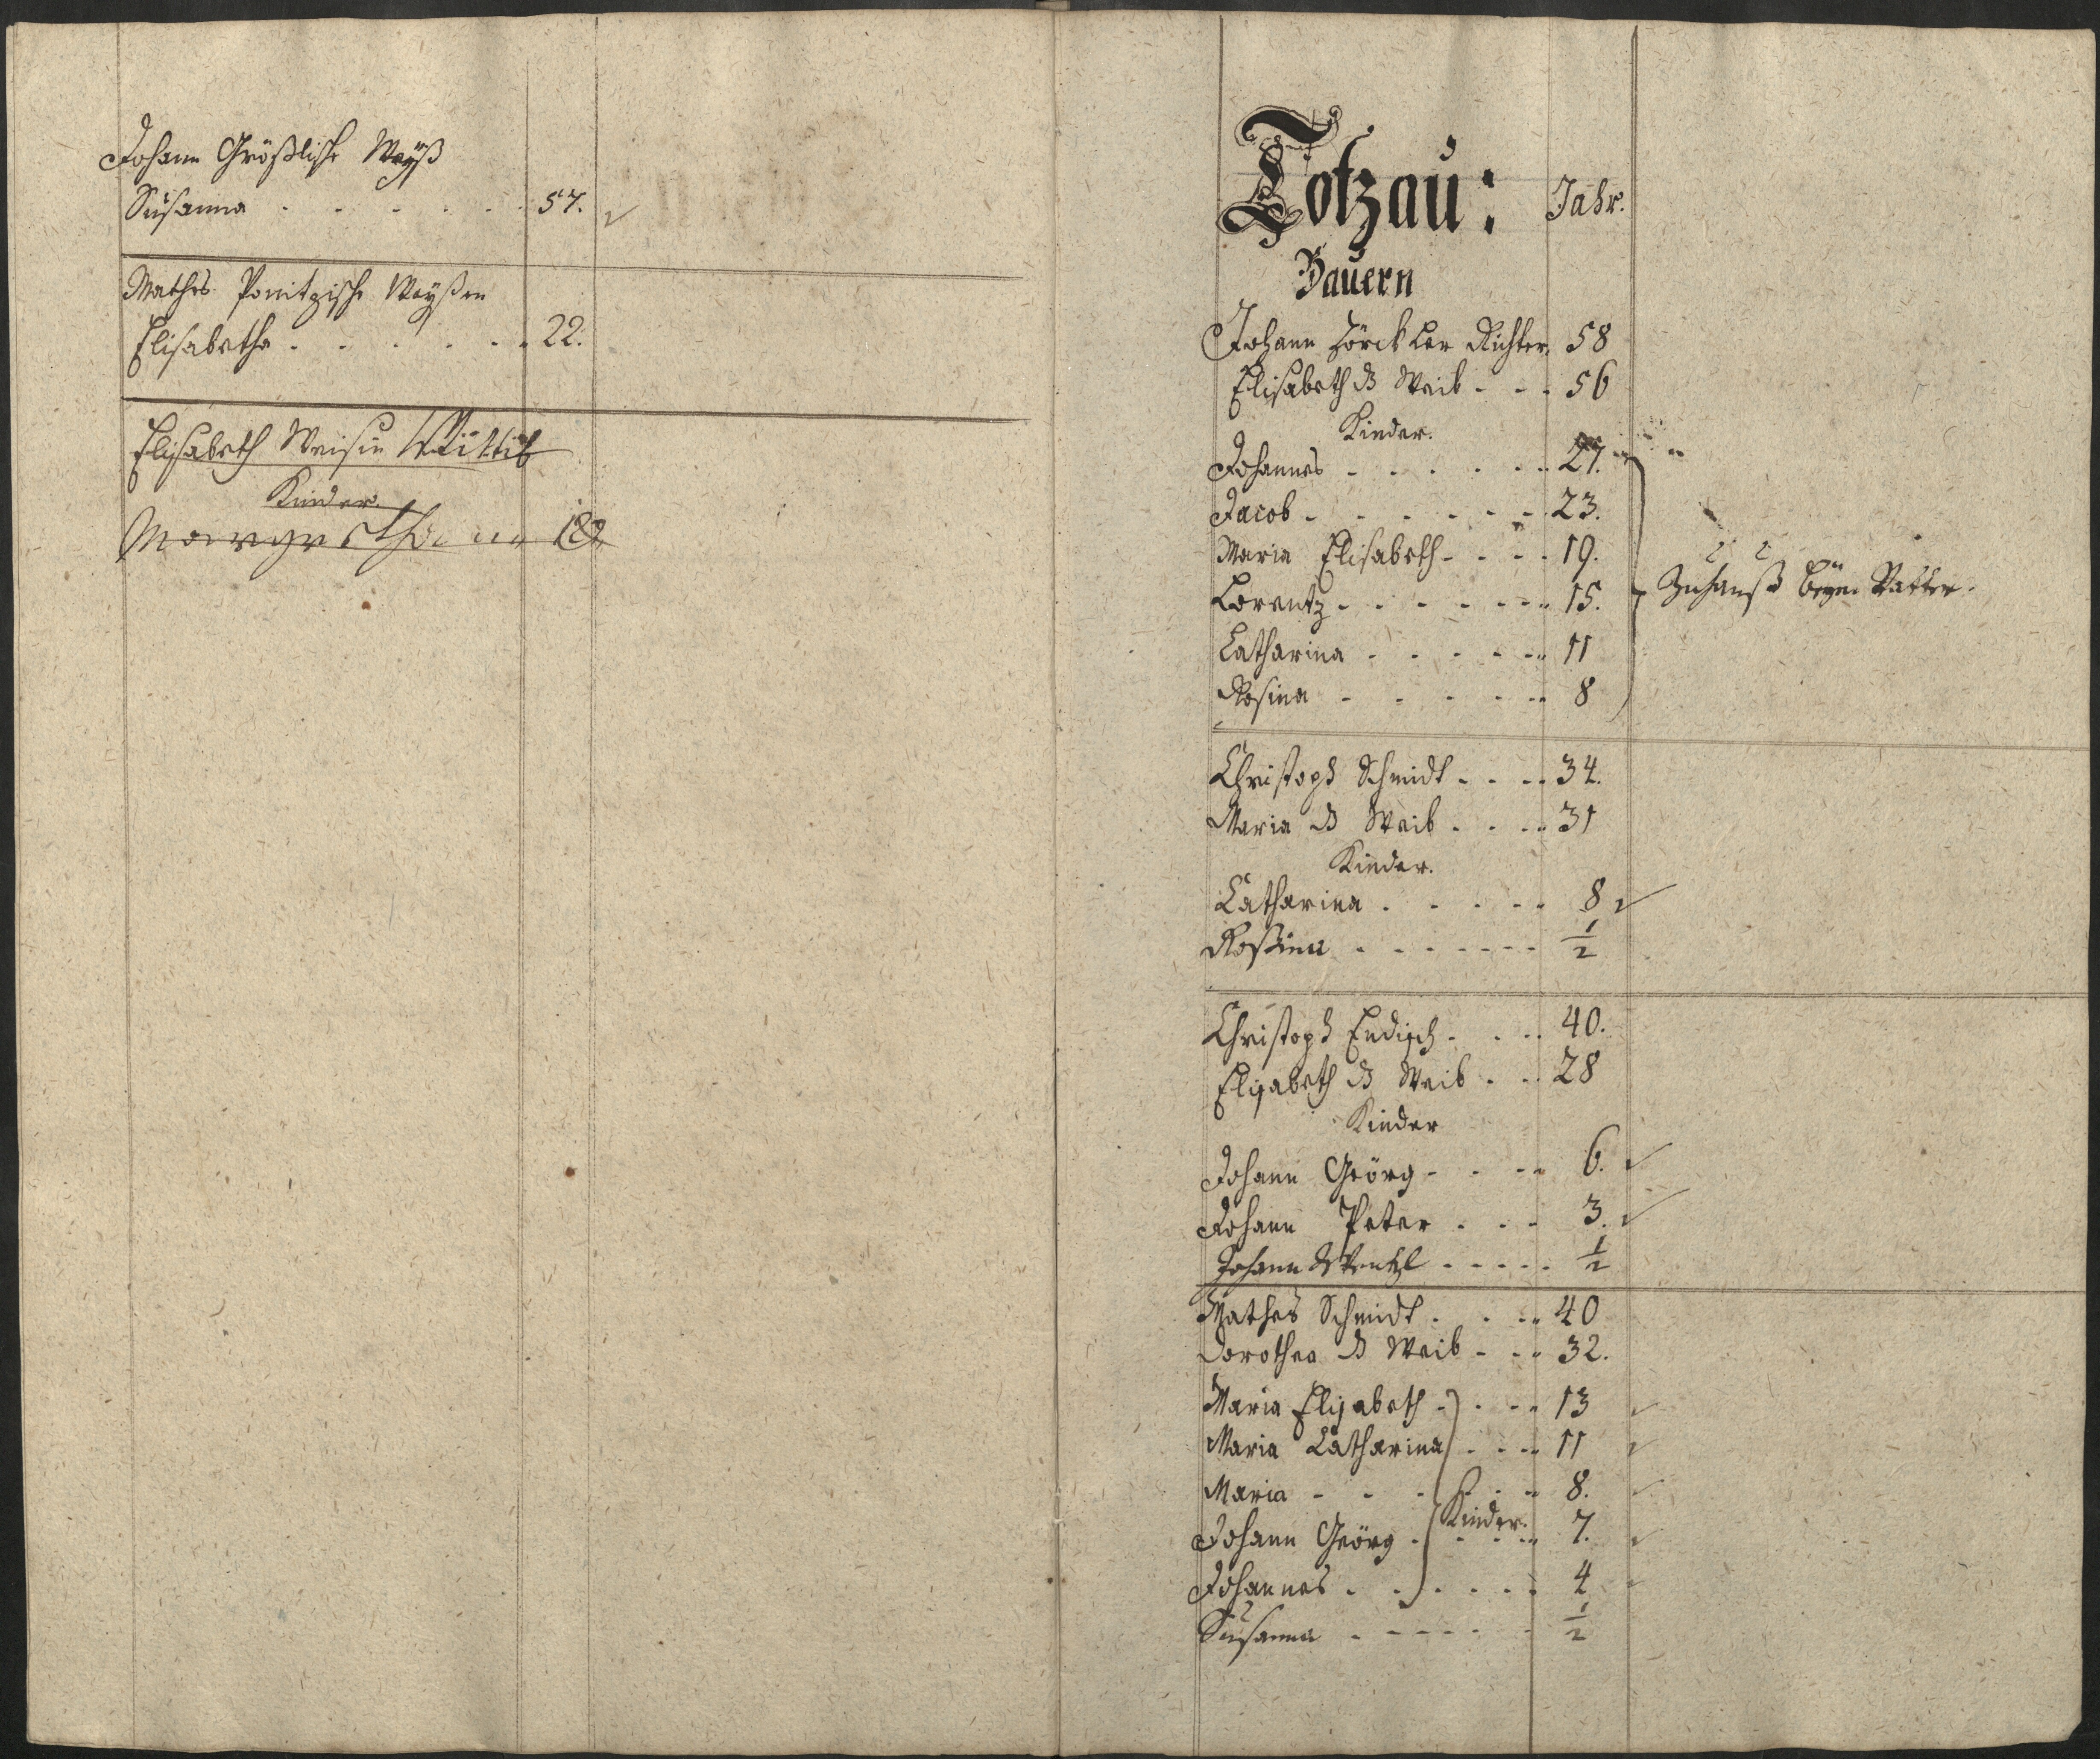 Johann Größlische Weyß
Susanna . . . . . . 57.
Mathes Ponitzische Weyßen
Elisabetha . . . . . . 22.
Elisabeth Weisin Wittib
Kinder
Margaretha 18
Totzau: Jahr.
Bauern
Johann Zörckler Richter. 58
Elisabeth d. Weib - - . 56
Kinder.
Johannes - . . . . . 27.
Jacob - . . . . . - 23.
Maria Elisabeth - . . . 19.
Lorentz - . . . . . 15. Zuhauß beym Vatter.
Catharina . . . . . 11
Rosina - - . . . 8
Christoph Schmidt . . . 34.
Maria d. Weib . . . 31
Kinder.
Catharina . . . . . 8
Rossina . . - - - - 1/2
Christoph Endisch . . . 40.
Elisabeth d. Weib . . 28
Kinder
Johann Geörg - . . . 6.
Johann Peter . . . 3.
Johann Wentzl - - - - . 1/2
Mathes Schmidt . . . 40
Dorothea d. Weib - . . 32.
Maria Elisabeth - . . . 13
Maria Catharina . . . 11
Maria - - . . . . 8.
Kinder.
Johann Geörg . . . . 7.
Johannes . . . . . . 4
Susanna . - - - - . 1/2